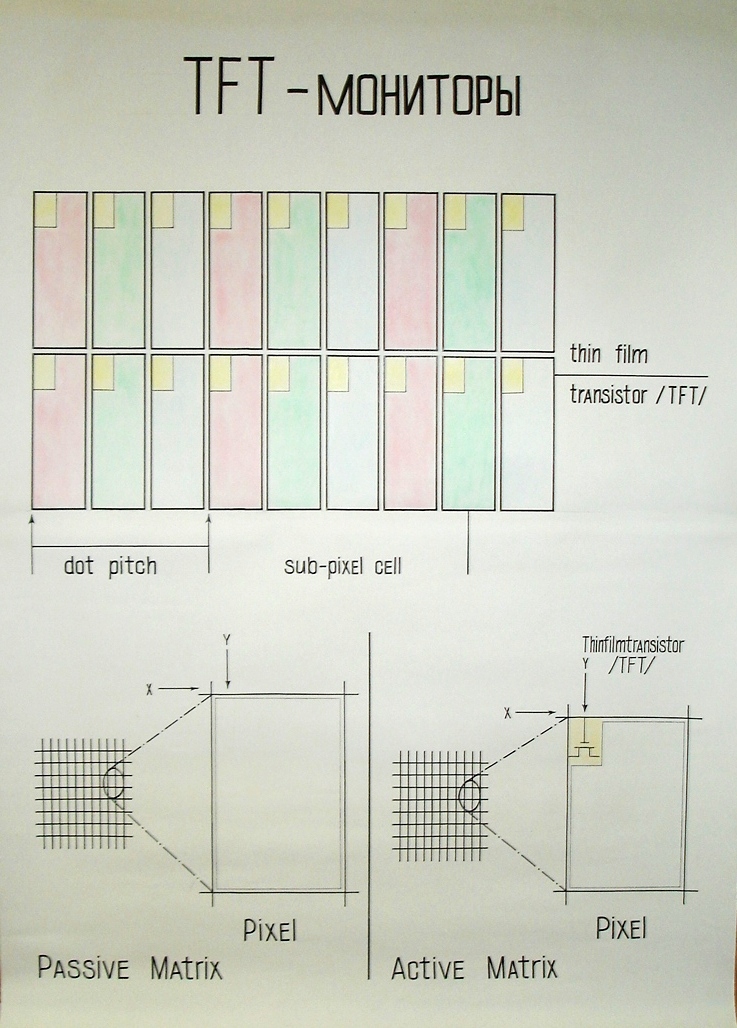 TFT - МОНИТОРЫ
thin film
transistor /TFT/
dot pitch
sub-pixel cell
Y
X
Pixel
Passive Matrix
Thinfilmtransistor
/TFT/
Y
X
Pixel
Active Matrix